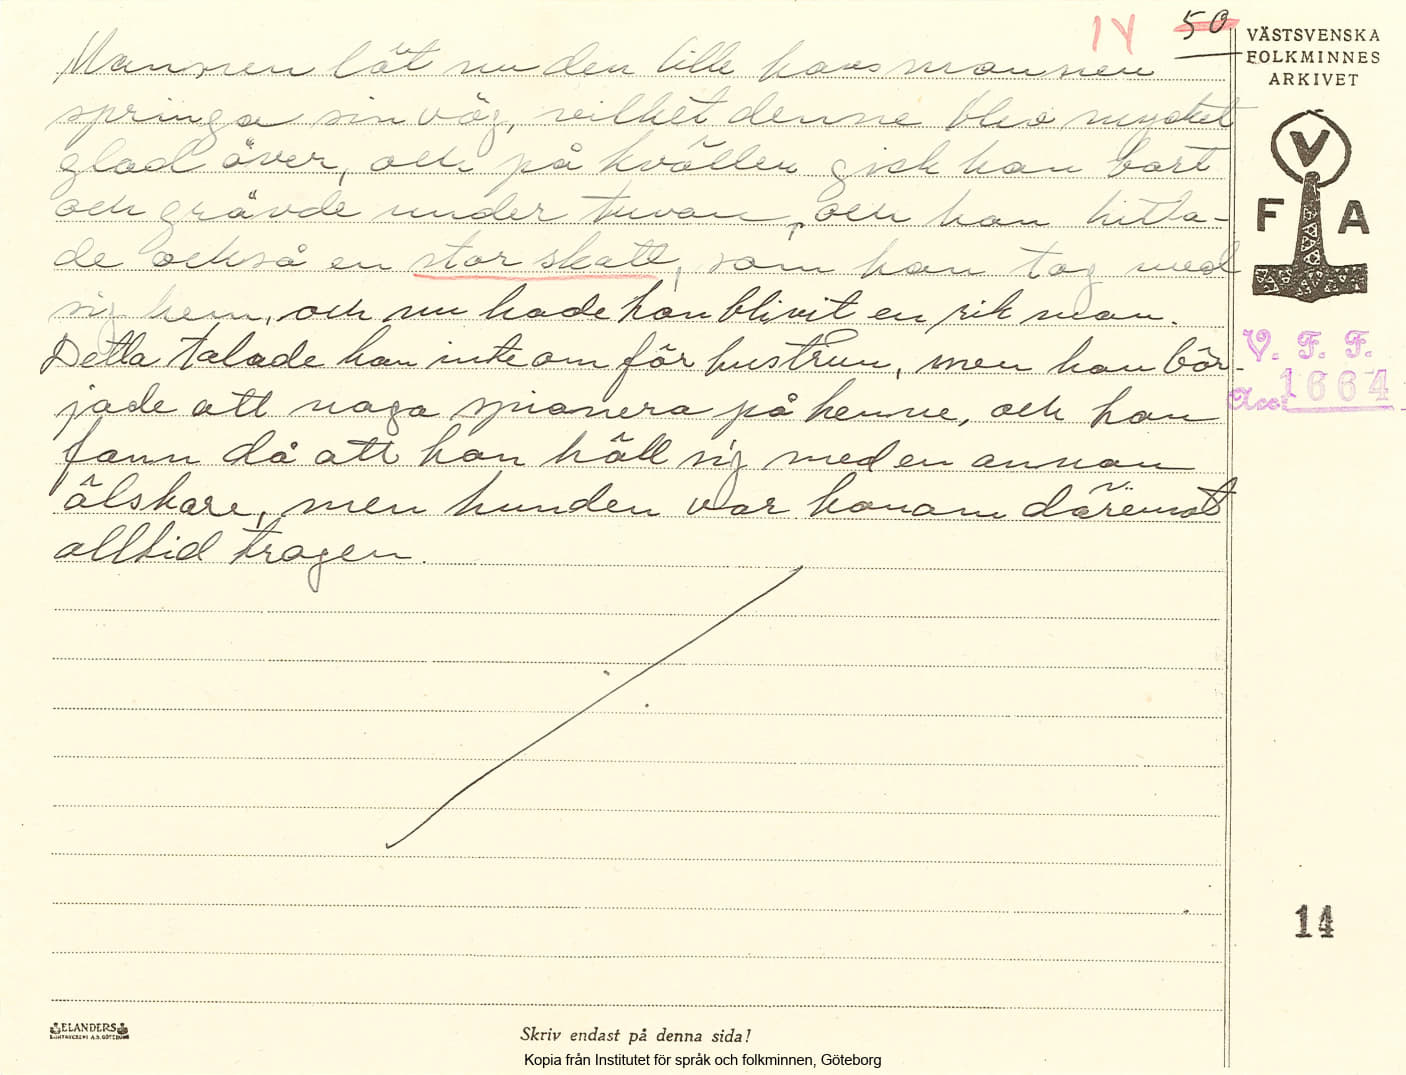 14 50
VÄSTSVENSKA
FOLKMINNES
ARKIVET
Mannen lät nu den lille haremannen
springa sin väg, vilket denne blev mycket
glad över, och på kvällen gick han bort
och grävde under tuvan, och han hitta-
de också en stor skatt, som han tog med
sig hem, och nu hade han blivit en rik man.
Detta talade han inte om för hustrun, men han bör-
jade att noga spionera på henne, och han
fann då att hon höll sig med en annan
älskare, men hunden var honom däremot
alltid trogen.
V
F A
V. F. F.
Acc: 1664
14
ELANDERS
Skriv endast på denna sida!
Kopia från Institutet för språk och folkminnen, Göteborg